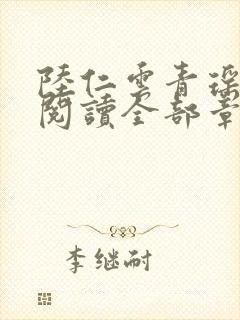 陸仁雲青瑤
閱讀全部章
李继耐